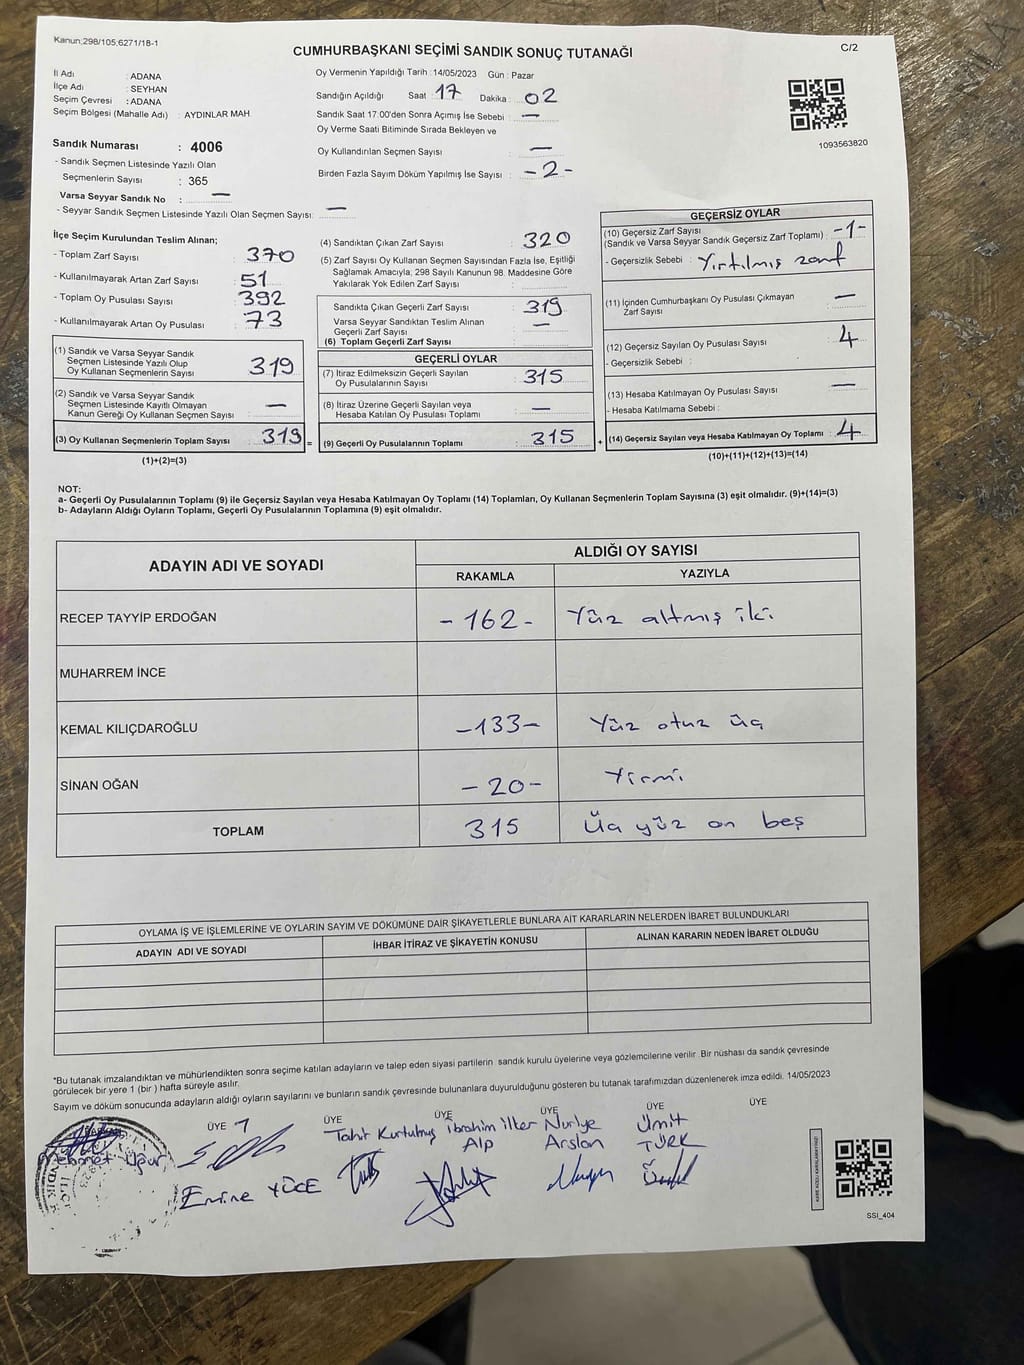 Kanun;298/105;6271/18-1
CUMHURBAŞKANI SEÇİMİ SANDIK SONUÇ TUTANAĞI
C/2
İl Adı : ADANA
İlçe Adı : SEYHAN
Seçim Çevresi : ADANA
Seçim Bölgesi (Mahalle Adı) : AYDINLAR MAH
Oy Vermenin Yapıldığı Tarih :14/05/2023 Gün : Pazar
Sandığın Açıldığı Saat : 17 Dakika : 02
Sandık Saat 17:00'den Sonra Açımış İse Sebebi : —
Oy Verme Saati Bitiminde Sırada Bekleyen ve
Oy Kullandırılan Seçmen Sayısı : —
Birden Fazla Sayım Döküm Yapılmış İse Sayısı : -2-
1093563820
Sandık Numarası : 4006
- Sandık Seçmen Listesinde Yazılı Olan
Seçmenlerin Sayısı : 365
Varsa Seyyar Sandık No : —
- Seyyar Sandık Seçmen Listesinde Yazılı Olan Seçmen Sayısı: —
İlçe Seçim Kurulundan Teslim Alınan;
- Toplam Zarf Sayısı : 370
- Kullanılmayarak Artan Zarf Sayısı : 51
- Toplam Oy Pusulası Sayısı : 392
- Kullanılmayarak Artan Oy Pusulası : 73
(1) Sandık ve Varsa Seyyar Sandık
Seçmen Listesinde Yazılı Olup
Oy Kullanan Seçmenlerin Sayısı : 319
(2) Sandık ve Varsa Seyyar Sandık
Seçmen Listesinde Kayıtlı Olmayan
Kanun Gereği Oy Kullanan Seçmen Sayısı : —
(3) Oy Kullanan Seçmenlerin Toplam Sayısı : 319 =
(1)+(2)=(3)
(4) Sandıktan Çıkan Zarf Sayısı : 320
(5) Zarf Sayısı Oy Kullanan Seçmen Sayısından Fazla İse, Eşitliği
Sağlamak Amacıyla, 298 Sayılı Kanunun 98. Maddesine Göre
Yakılarak Yok Edilen Zarf Sayısı :
Sandıkta Çıkan Geçerli Zarf Sayısı : 319
Varsa Seyyar Sandıktan Teslim Alınan
Geçerli Zarf Sayısı : —
(6) Toplam Geçerli Zarf Sayısı :
GEÇERLİ OYLAR
(7) İtiraz Edilmeksizin Geçerli Sayılan
Oy Pusulalarının Sayısı : 315
(8) İtiraz Üzerine Geçerli Sayılan veya
Hesaba Katılan Oy Pusulası Toplamı : —
(9) Geçerli Oy Pusulalarının Toplamı : 315 +
GEÇERSİZ OYLAR
(10) Geçersiz Zarf Sayısı
(Sandık ve Varsa Seyyar Sandık Geçersiz Zarf Toplamı) : -1-
- Geçersizlik Sebebi : Yırtılmış zarf
(11) İçinden Cumhurbaşkanı Oy Pusulası Çıkmayan
Zarf Sayısı : —
(12) Geçersiz Sayılan Oy Pusulası Sayısı : 4
- Geçersizlik Sebebi :
(13) Hesaba Katılmayan Oy Pusulası Sayısı : —
- Hesaba Katılmama Sebebi :
(14) Geçersiz Sayılan veya Hesaba Katılmayan Oy Toplamı : 4
(10)+(11)+(12)+(13)=(14)
NOT:
a- Geçerli Oy Pusulalarının Toplamı (9) ile Geçersiz Sayılan veya Hesaba Katılmayan Oy Toplamı (14) Toplamları, Oy Kullanan Seçmenlerin Toplam Sayısına (3) eşit olmalıdır. (9)+(14)=(3)
b- Adayların Aldığı Oyların Toplamı, Geçerli Oy Pusulalarının Toplamına (9) eşit olmalıdır.
ADAYIN ADI VE SOYADI
ALDIĞI OY SAYISI
RAKAMLA YAZIYLA
RECEP TAYYİP ERDOĞAN -162- Yüz altmış iki
MUHARREM İNCE
KEMAL KILIÇDAROĞLU -133- Yüz otuz üç
SİNAN OĞAN -20- Yirmi
TOPLAM 315 Üç yüz on beş
OYLAMA İŞ VE İŞLEMLERİNE VE OYLARIN SAYIM VE DÖKÜMÜNE DAİR ŞİKAYETLERLE BUNLARA AİT KARARLARIN NELERDEN İBARET BULUNDUKLARI
ADAYIN ADI VE SOYADI İHBAR İTİRAZ VE ŞİKAYETİN KONUSU ALINAN KARARIN NEDEN İBARET OLDUĞU
*Bu tutanak imzalandıktan ve mühürlendikten sonra seçime katılan adayların ve talep eden siyasi partilerin sandık kurulu üyelerine veya gözlemcilerine verilir. Bir nüshası da sandık çevresinde
görülecek bir yere 1 (bir ) hafta süreyle asılır.
Sayım ve döküm sonucunda adayların aldığı oyların sayılarını ve bunların sandık çevresinde bulunanlara duyurulduğunu gösteren bu tutanak tarafımızdan düzenlenerek imza edildi. 14/05/2023
ÜYE ÜYE ÜYE ÜYE ÜYE ÜYE
Mehmet Uğur
Emine YÜCE
Tahir Kurtulmuş
İbrahim İlker
Alp
Nuriye
Arslan
Ümit
TÜRK
SSI_404